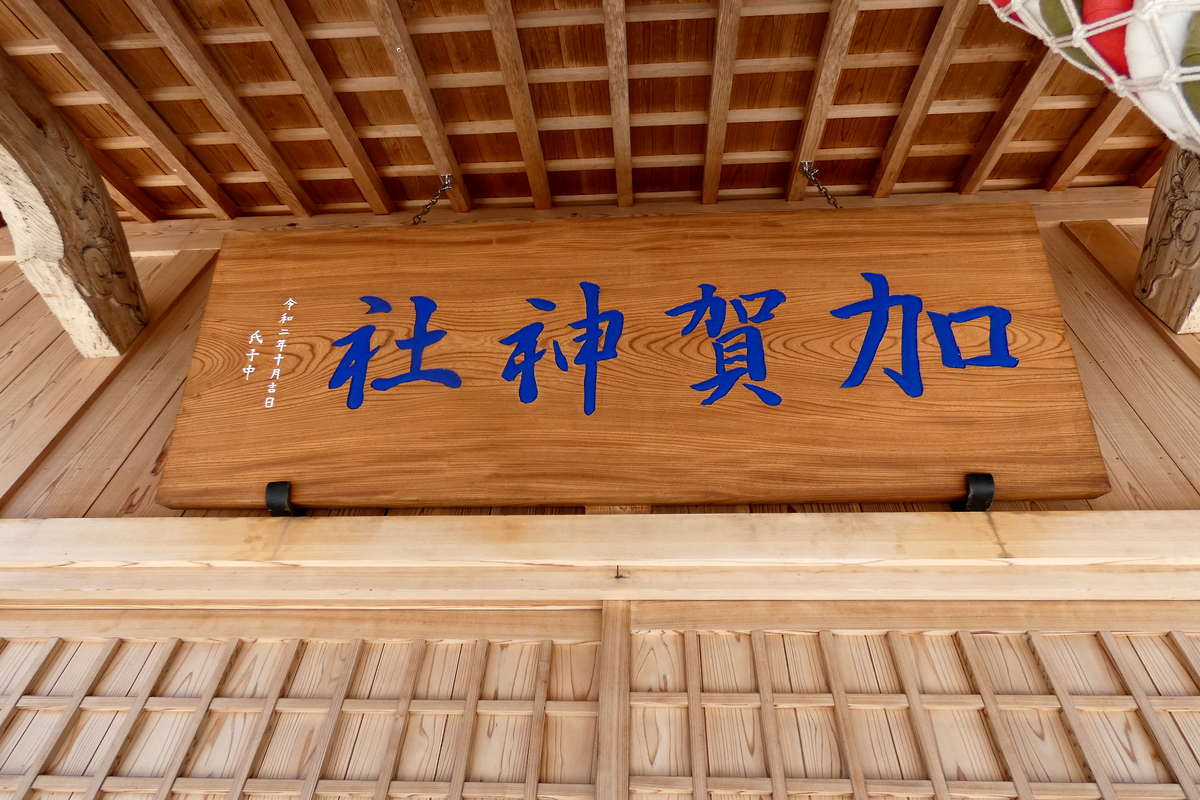 加賀神社
令和二年十月吉日
氏子中